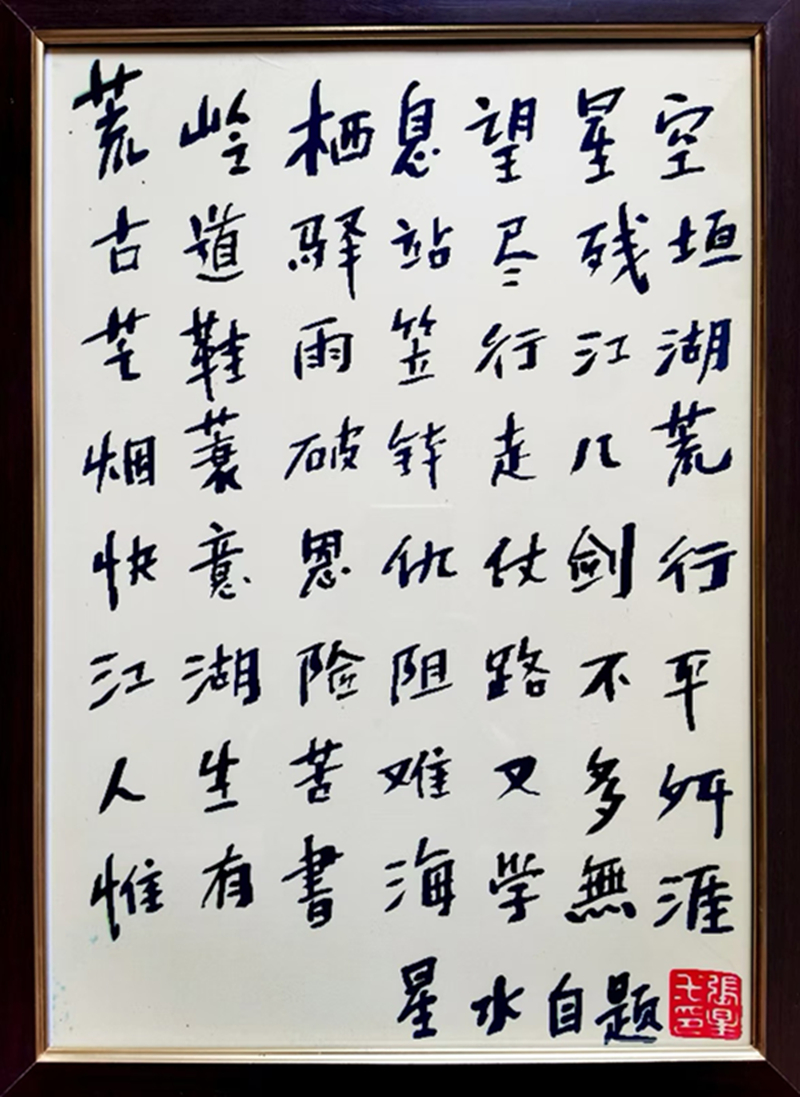 荒岭栖息望星空
古道驿站尽残垣
芒鞋雨笠行江湖
烟蓑破钵走八荒
快意恩仇仗剑行
江湖险阻路不平
人生苦难又多舛
惟有書海学無涯
星水自题
張星印